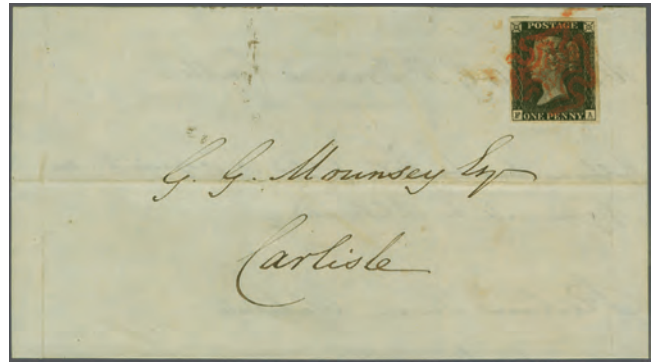 POSTAGE
F A
ONE PENNY
G. G. Mounsey Esq
Carlisle